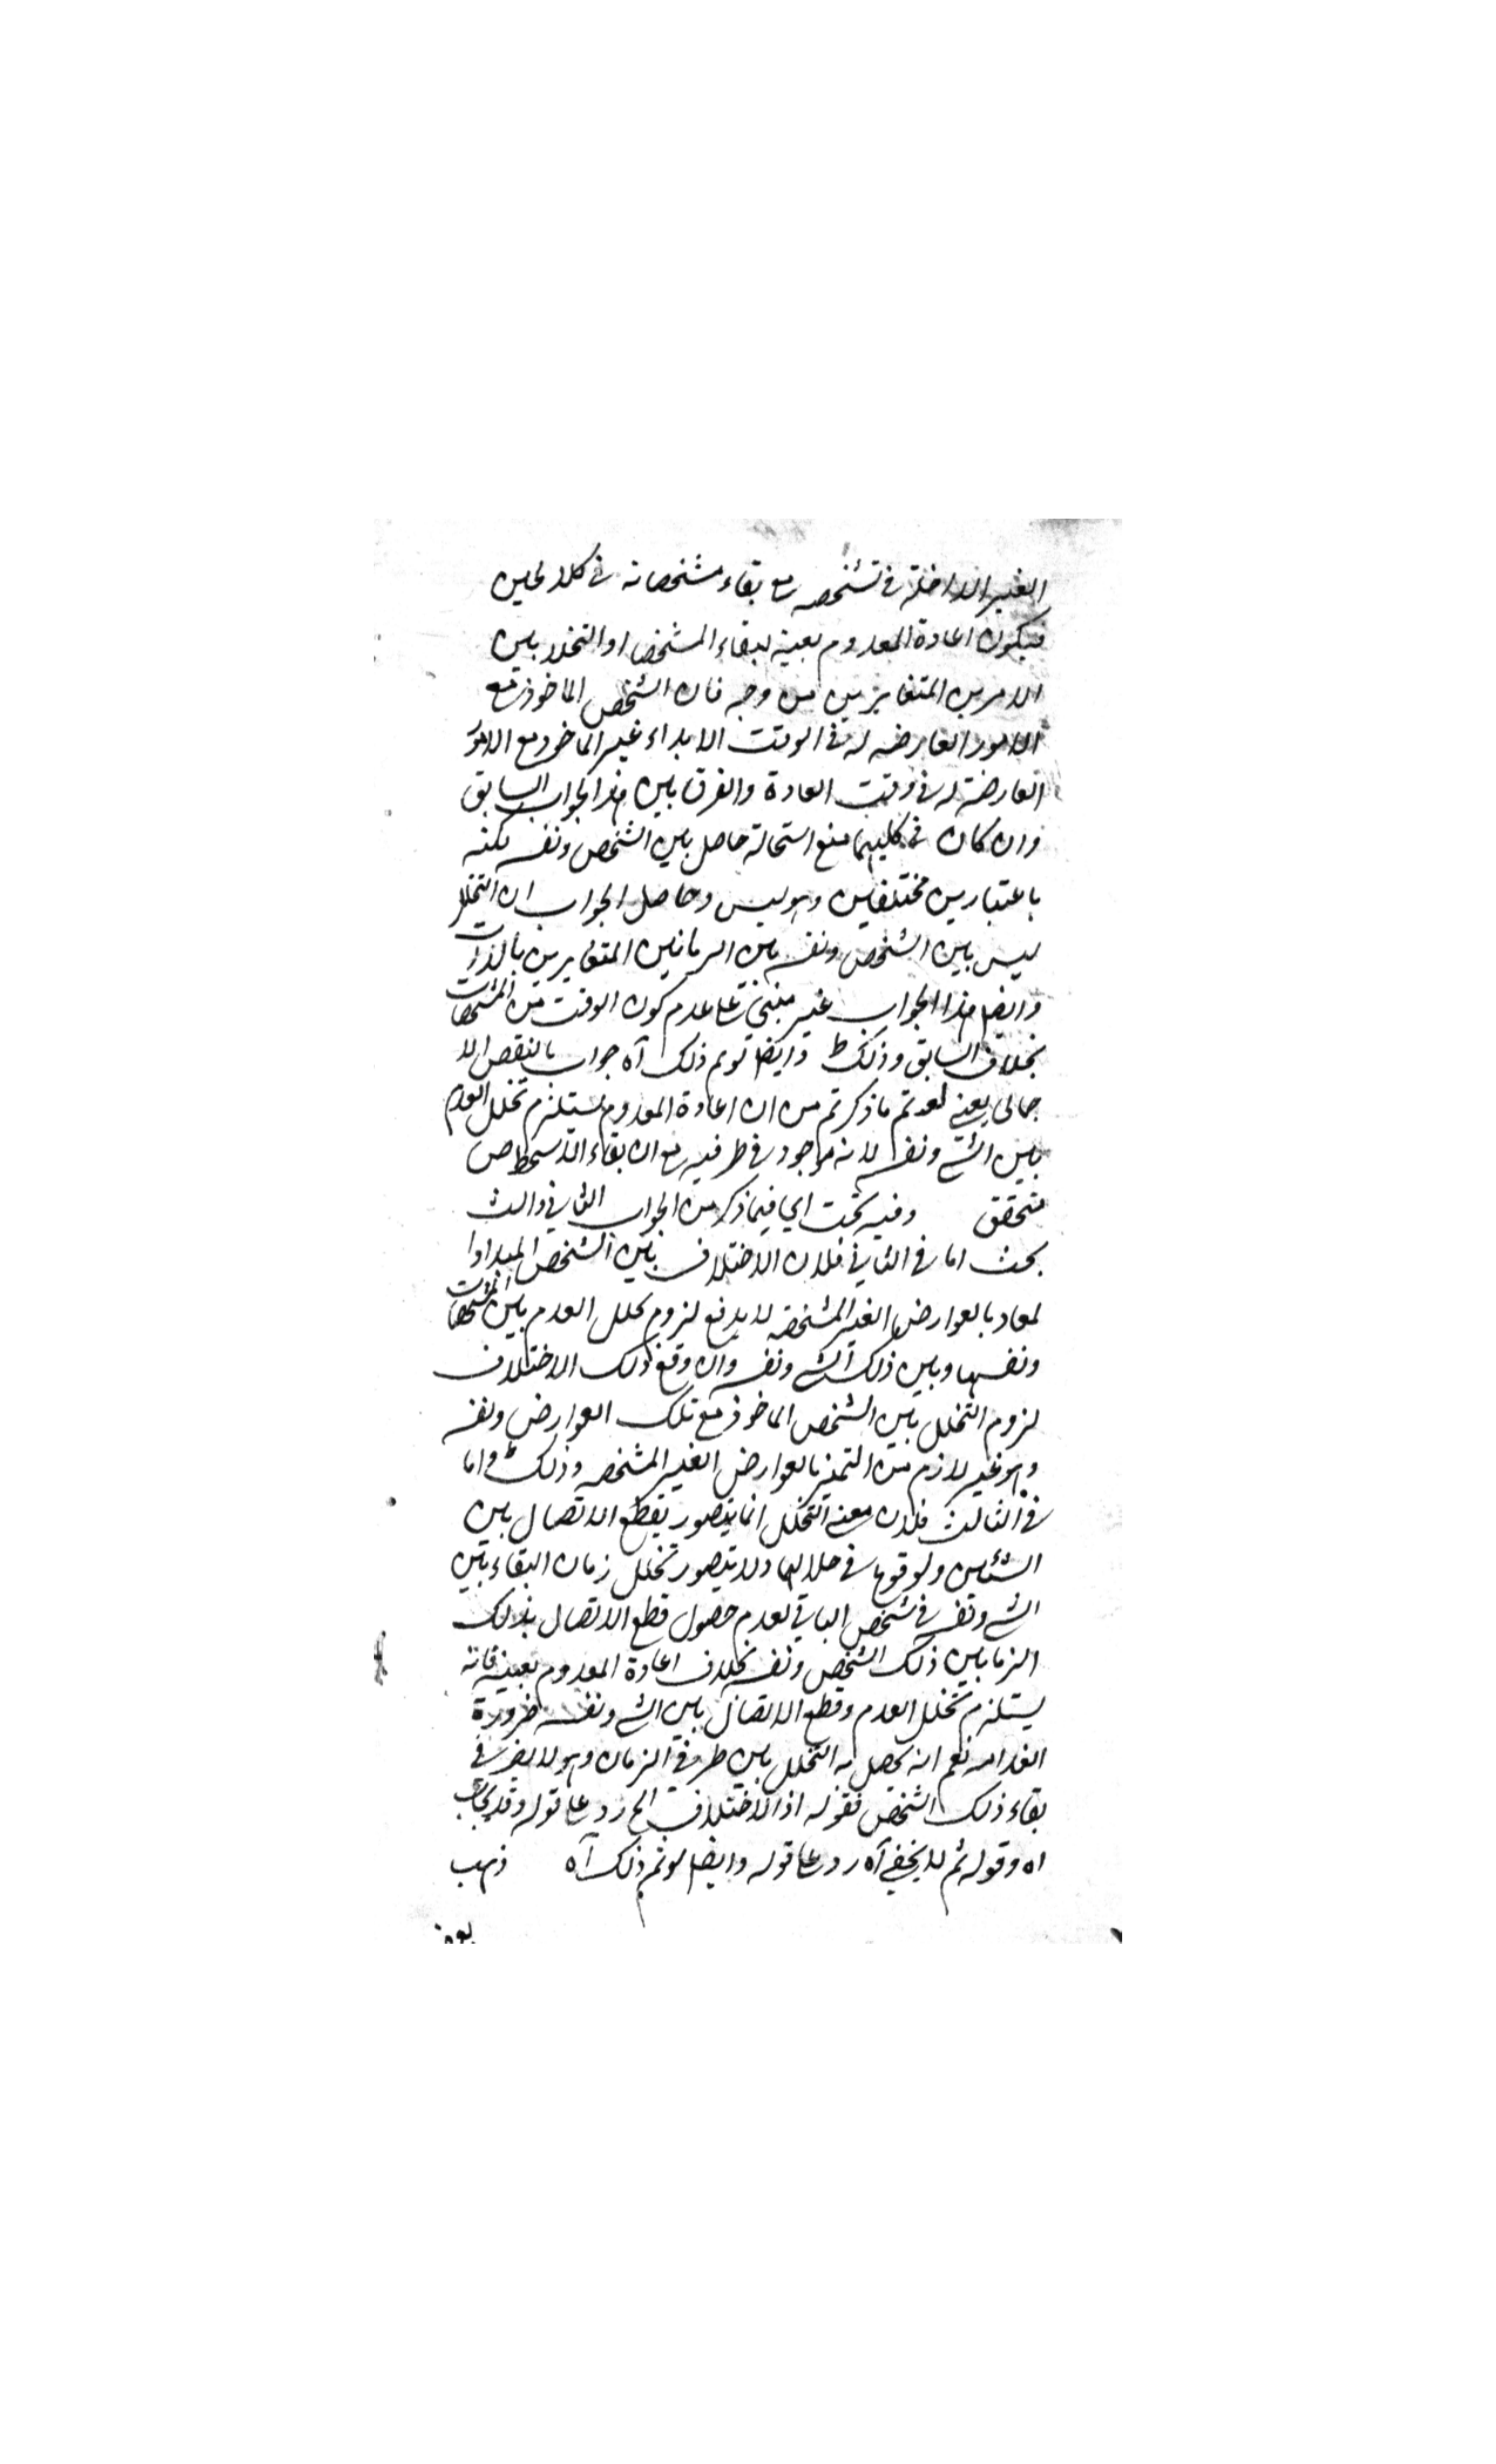 الغير الداخلة في تشخصه مع بقاء مشخصاته في كلا لحاين
فيكون اعادة المعدوم بعينه لبقاء المشخصا او التخلل بين
الامرين المتغايرين من وجه فان الشخص الماخوذ مع
الامور العارضه له في الوقت الابداء غير الماخوذ مع الامور
العارضة له في وقت العادة والفرق بين هذا الجواب السابق
وان كان في كليهما منع استحالة حاصل بين الشخص ونفسه لكنه
باعتبارين مختلفين وهو ليس وحاصل الجواب ان التخلل
ليس بين الشخص ونفسه بين الزمانين المتغايرين بالذات
وايضا هذا الجواب غير مبني على عدم كون الوقت من المشخصات
بخلاف السابق وذلك ط وايضا لو تم ذلك آه جواب بالنقض الا
جمالي يعني لو تم ما ذكرتم من ان اعادة المعدوم يستلزم تخلل العدم
بين الشئ ونفسه لانه موجود في طرفيه مع ان بقاء الاشخاص
متحقق وفيه بحث اي فيما ذكر من الجواب الثاني والث
بحث اما في الثاني فلان الاختلاف بين الشخص المبداوا
لمعاد بالعوارض الغير المشخصه لا يدفع لزوم تخلل العدم بين المشخصات
ونفسها وبين ذلك الشئ ونفسه وان وقع ذلك الاختلاف
لزوم التخلل بين الشخص الماخوذ مع تلك العوارض ونفسه
وهو غير لازم من التميز بالعوارض الغير المشخصه وذلك ط واما
في الثالث فلان معنى التخلل انما يتصور بقطع الاتصال بين
الشيئين ولوقوعها في خلالهما ولا يتصور تخلل زمان البقاء بين
الشئ ونفسه في شخص الباقي لعدم حصول قطع الاتصال بذلك
الزما بين ذلك الشخص ونفسه بخلاف اعادة المعدوم بعينه فانه
يستلزم تخلل العدم وقطع الاتصال بين الشئ ونفسه ضرورة
نعم انه يحصل به التخلل بين طرفي الزمان وهو لا يضر في
بقاء ذلك الشخص فقوله اذ الاختلاف الخ رد على قوله وقد يجاب
اه وقوله ثم لا يخفى آه رد على قوله وايضا لو تم ذلك آه ذهب